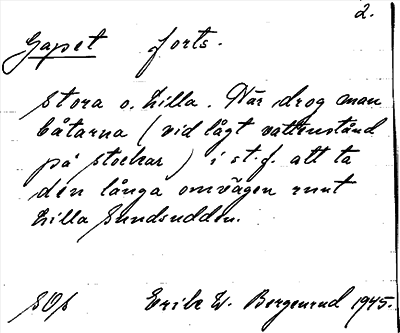 2.
Gapet forts.
Stora o. Lilla. Här drog man
båtarna (vid lågt vattenstånd
på stockar) i st. f. att ta
den långa omvägen runt
Lilla Sundsudden.
SOf Erik W. Bergenrud 1945.